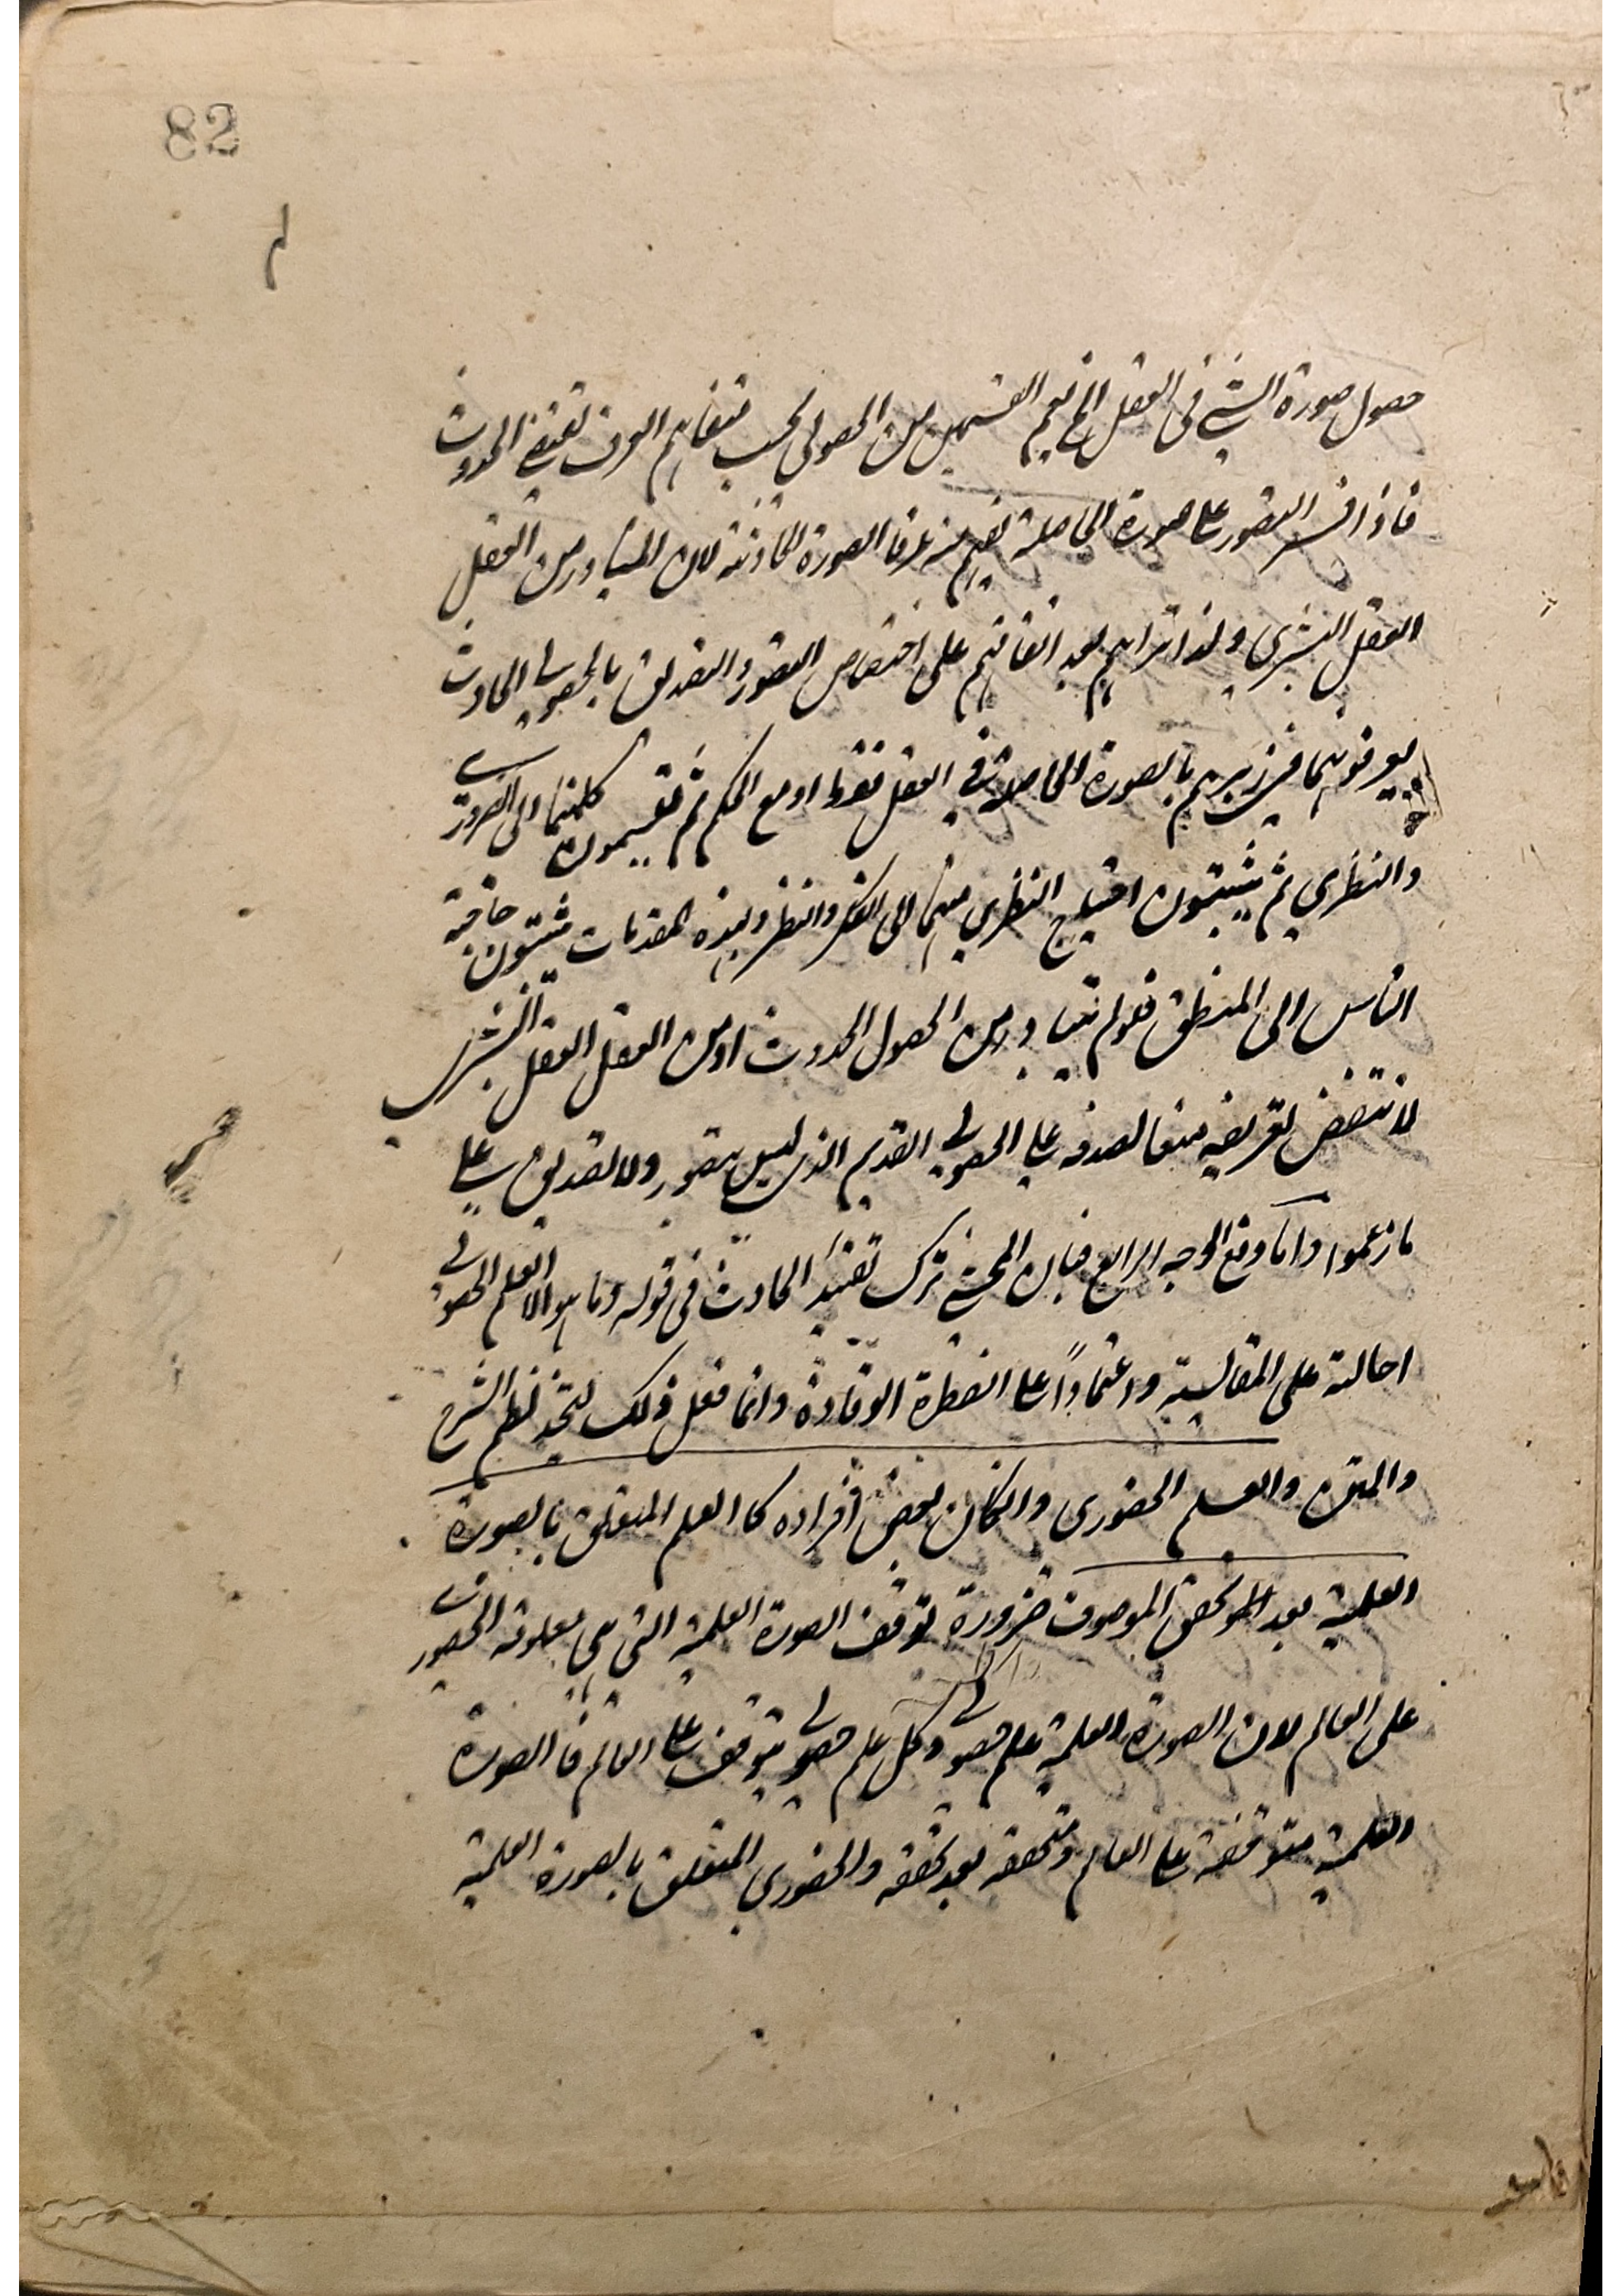 82
حصول صورة الشئ فى العقل الخ يعم القسمين من الحصولى بحسب متفاهم العرف تقتضى الحدوث
فاذا فسر التصور على صورة الحاصلة يفهم منه عرفا الصورة الحادثة لان المتبادر من العقل
العقل البشرى ولذا تراهم بعد اتفاقهم على اختصاص التصور والتصديق بالحصولى الحادث
يعرفونهما فى زبرهم بالصورة الحاصلة فى العقل فقط او مع الحكم ثم يقسمون كلتهما الى الضرورى
والنظرى ثم يثبتون احتياج النظرى منهما الى الفكر والنظر وبهذه المقدمات يثبتون حاجة
الناس الى المنطق فلو لم يتبادر من الحصول الحدوث او من العقل العقل البشرى
لانتقض تعريفه منعا لصدقه على الحصولى القديم الذى ليس بتصور ولا تصديق على
ما زعموا واما وقع الوجه الرابع فبان المحشى ترك تقييد الحادث فى قوله وما هو الا العلم الحصولى
احالة على المقايسة واعتمادًا على الفطرة الوقادة وانما فعل ذلك ليتحد نظم الشرح
والمتن والعلم الحضورى وانكان بعض افراده كا العلم المتعلق بالصورة
العلمية بعد تحقق الموصوف ضرورة توقف الصورة العلمية التى هى معلومة الحضورى
على العالم لان الصورة العلمية علم حصولى وكل علم حصولى يتوقف على العالم فا الصورة
العلمية متوقفة على العالم ومتحققه بعد تحققه والحضورى المتعلق بالصورة العلمية